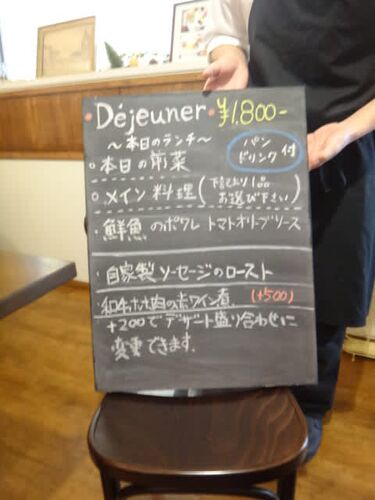 Déjeuner ¥1.800-
～本日のランチ～
パン
ドリンク 付
・本日の前菜
・メイン料理（下記より1品
お選び下さい）
・鮮魚のポワレ トマトオリーブソース
・自家製ソーセージのロースト
・和牛ホホ肉の赤ワイン煮 (+500)
+200でデザート盛り合わせに
変更できます。